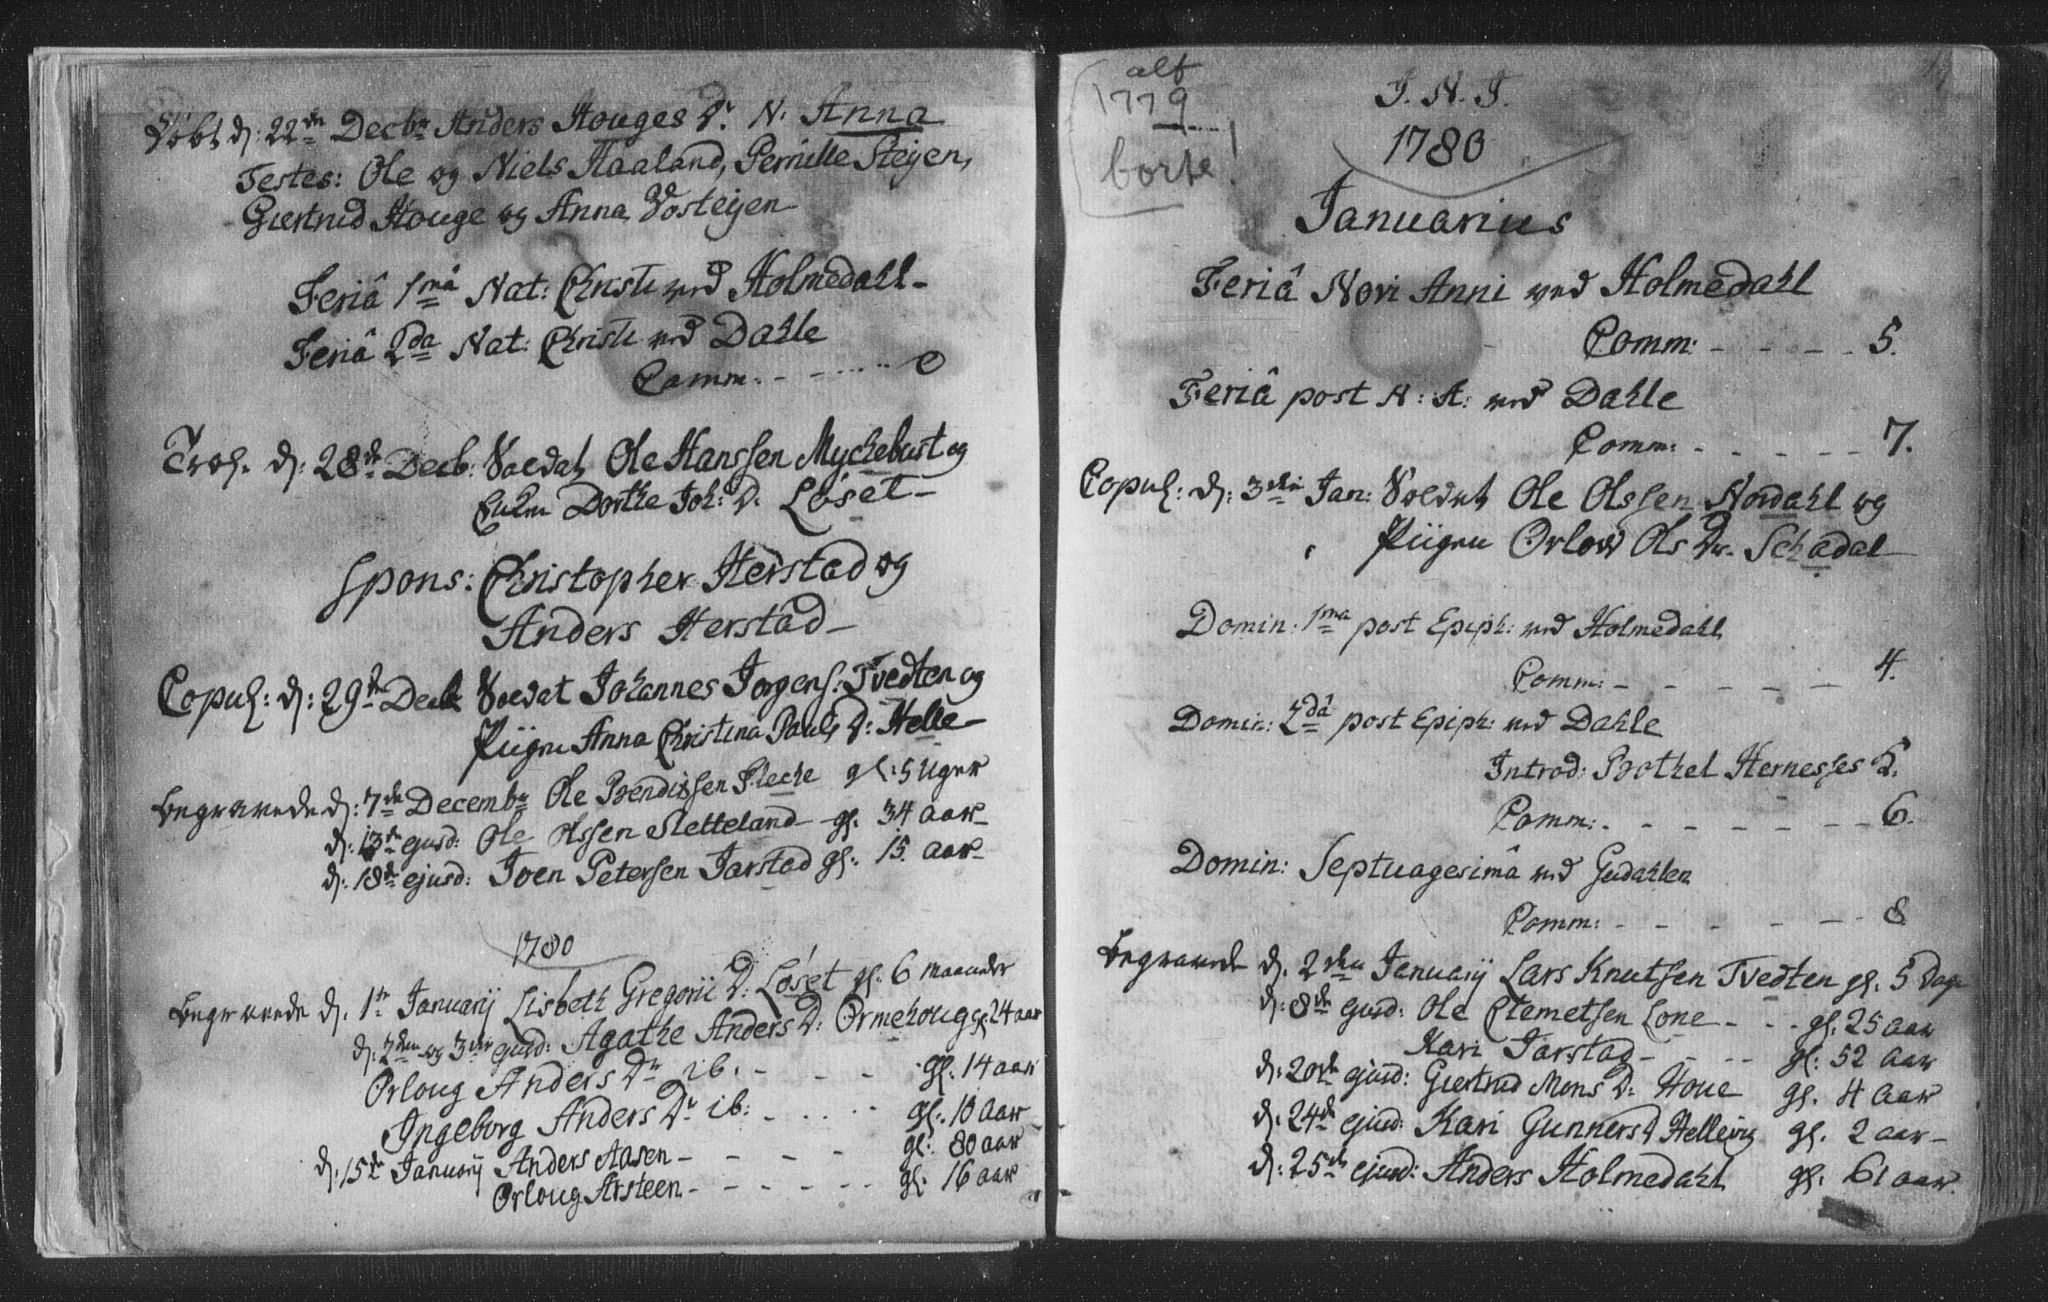 Døbt d: 22de Decbr Anders Houges Dr. N. Anna
Testes: Ole og Niels Haaland, Pernille Steyen,
Giertrud Houge og Anna Vosteyen
Feriâ 1mâ Nat: Christi ved Holmedahl
Feriâ 2da Nat: Christi ved Dahle
Comm: - - - - - 0
Trol. d: 28de Decb: Soldat Ole Hanssen Myckebust og
Enken Dorthe Joh: D. Løset
Spons: Christopher Herstad og
Anders Herstad
Copul: d: 29de Decb Soldat Johannes Jørgens: Tvedten og
Piigen Anna Christina Pauls D: Helle
Begravede d: 7de Decembr Ole Bendixsen Fleche gl: 5 Uger
d: 13de ejusd: Ole Olssen Sletteland gl. 34 aar
d: 18de ejusd: Joen Petersen Jarstad gl: 15 aar
1780
Begravede d. 1te Januarij Lisbeth Gregorii D: Løset gl: 6 maaneder
d: 2den og 3die ejusd: Agathe Anders D: Ormehoug gl 24 aar
Orloug Anders Dr ib. - - - gl. 14 aar
Ingeborg Anders Dr ib: - - - gl. 10 aar
d. 15de Januarij Anders Aasen - - - - gl. 80 aar
Orloug Arsteen - - - - - gl. 16 aar
alt
1779
borte!
19
J. N. J.
1780
Januarius
Feriâ Novi Anni ved Holmedahl
Comm: - - - - 5.
Feriâ post N: A: ved Dahle
Comm: - - - - - 7.
Copul: d: 3die Jan: Soldat Ole Olssen Nordahl og
Piigen Orlow Ols Dr. Schadal
Domin: 1ma post Epiph: ved Holmedahl
Comm: - - - - - 4.
Domin: 2dâ post Epiph: ved Dahle
Introd: Bothel Hernesses
Comm: - - - - - - 6.
Domin: Septuagesimâ ved Gudahlen
Comm: - - - - - - 8
Begravede d. 2den Januarij Lars Knutsen Tvedten gl. 5 Dage
d: 8de ejusd: Ole Clemetsen Lone - - - gl. 25 aar
Kari Jarstad - - - gl: 52 aar
d: 20de ejusd: Giertrud Mons D. Hove gl. 4 aar
d. 24de ejusd: Kari Gunners D Hellevig gl. 2 aar
d: 25de ejusd: Anders Holmedahl gl. 61 aar.